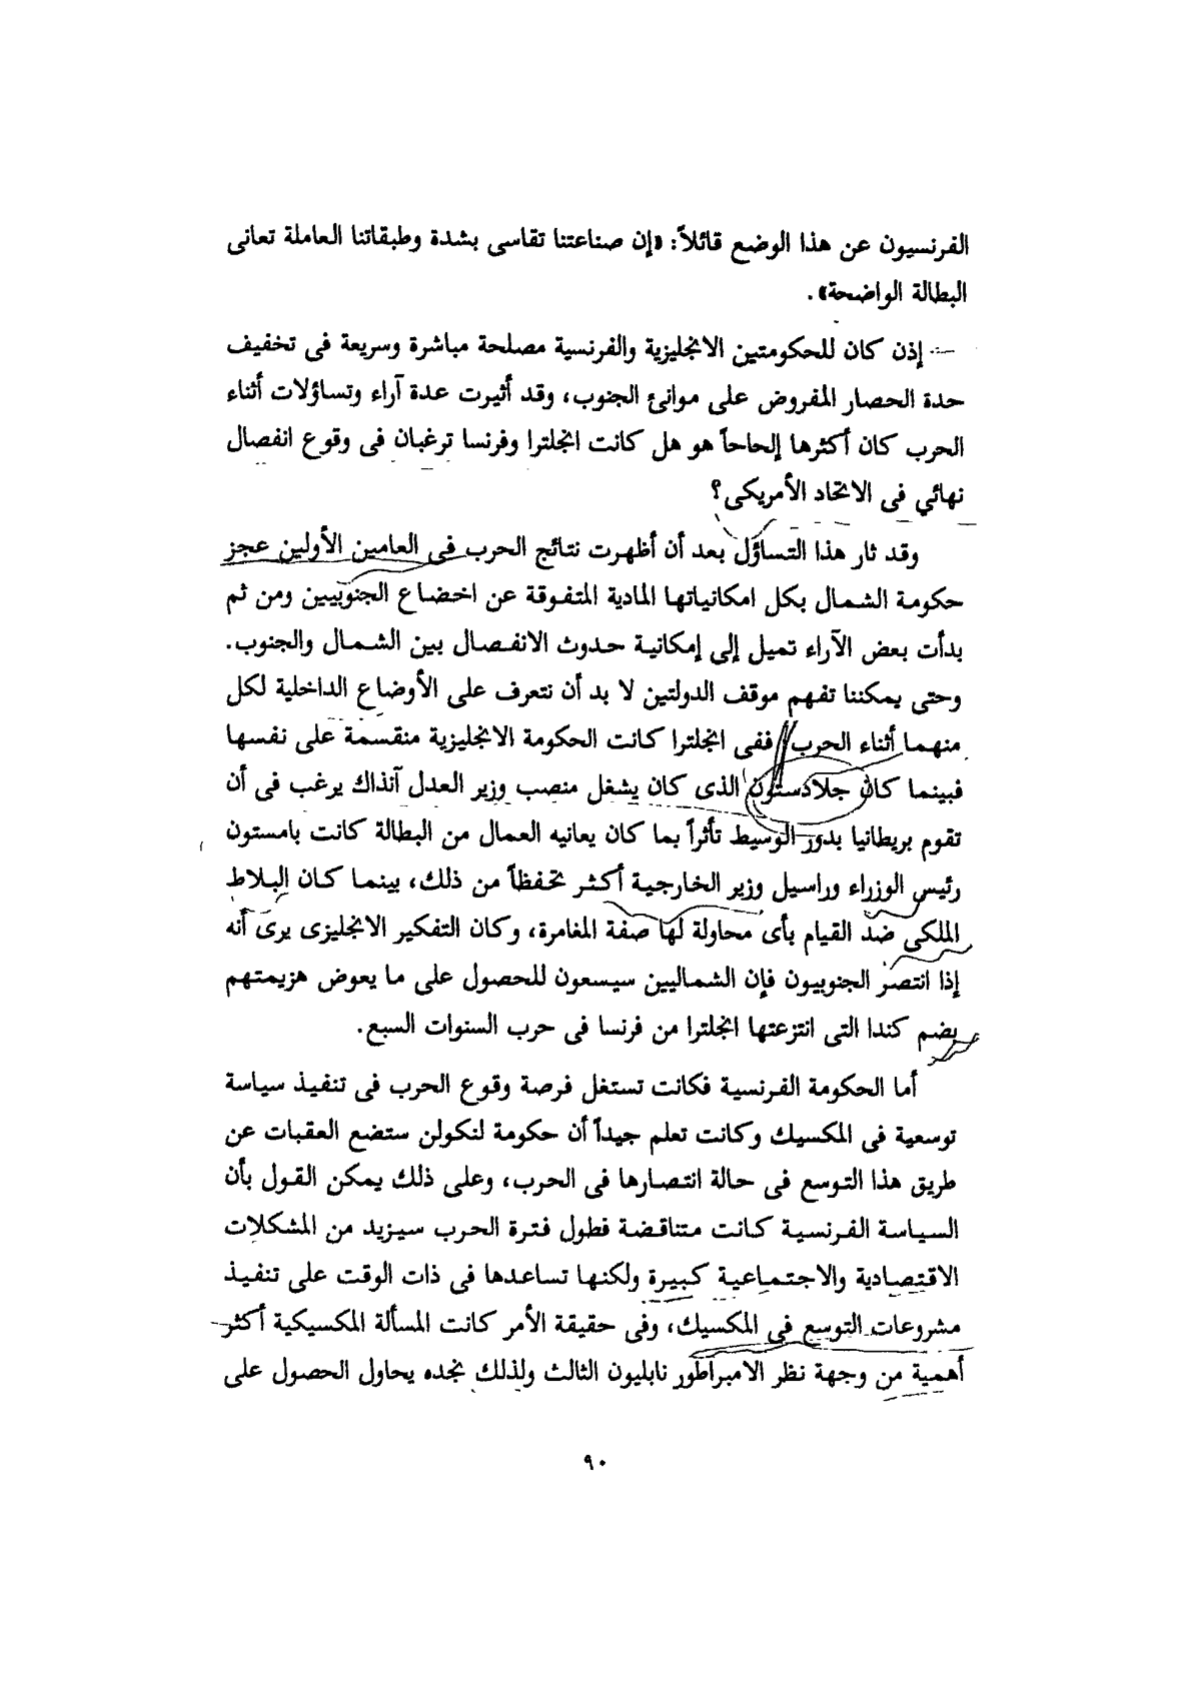 الفرنسيون عن هذا الوضع قائلاً: «إن صناعتنا تقاسى بشدة وطبقاتنا العاملة تعانى
البطالة الواضحة».
إذن كان للحكومتين الانجليزية والفرنسية مصلحة مباشرة وسريعة فى تخفيف
حدة الحصار المفروض على موانئ الجنوب، وقد أثيرت عدة آراء وتساؤلات أثناء
الحرب كان أكثرها إلحاحاً هو هل كانت انجلترا وفرنسا ترغبان فى وقوع انفصال
نهائي فى الاتحاد الأمريكى؟
وقد ثار هذا التساؤل بعد أن أظهرت نتائج الحرب فى العامين الأولين عجز
حكومة الشمال بكل امكانياتها المادية المتفوقة عن اخضاع الجنوبيين ومن ثم
بدأت بعض الآراء تميل إلى إمكانية حدوث الانفصال بين الشمال والجنوب.
وحتى يمكننا تفهم موقف الدولتين لا بد أن نتعرف على الأوضاع الداخلية لكل
منهما أثناء الحرب ففى انجلترا كانت الحكومة الانجليزية منقسمة على نفسها
فبينما كان جلادستون الذى كان يشغل منصب وزير العدل آنذاك يرغب فى أن
تقوم بريطانيا بدور الوسيط تأثراً بما كان يعانيه العمال من البطالة كانت بامستون
رئيس الوزراء وراسيل وزير الخارجية أكثر تحفظاً من ذلك، بينما كان البلاط
الملكى ضد القيام بأى محاولة لها صفة المغامرة، وكان التفكير الانجليزى يرى أنه
إذا انتصر الجنوبيون فإن الشماليين سيسعون للحصول على ما يعوض هزيمتهم
بضم كندا التى انتزعتها انجلترا من فرنسا فى حرب السنوات السبع.
أما الحكومة الفرنسية فكانت تستغل فرصة وقوع الحرب فى تنفيذ سياسة
توسعية فى المكسيك وكانت تعلم جيداً أن حكومة لنكولن ستضع العقبات عن
طريق هذا التوسع فى حالة انتصارها فى الحرب، وعلى ذلك يمكن القول بأن
السياسة الفرنسية كانت متناقضة فطول فترة الحرب سيزيد من المشكلات
الاقتصادية والاجتماعية كبيرة ولكنها تساعدها فى ذات الوقت على تنفيذ
مشروعات التوسع فى المكسيك، وفى حقيقة الأمر كانت المسألة المكسيكية أكثر
أهمية من وجهة نظر الامبراطور نابليون الثالث ولذلك نجده يحاول الحصول على
٩٠